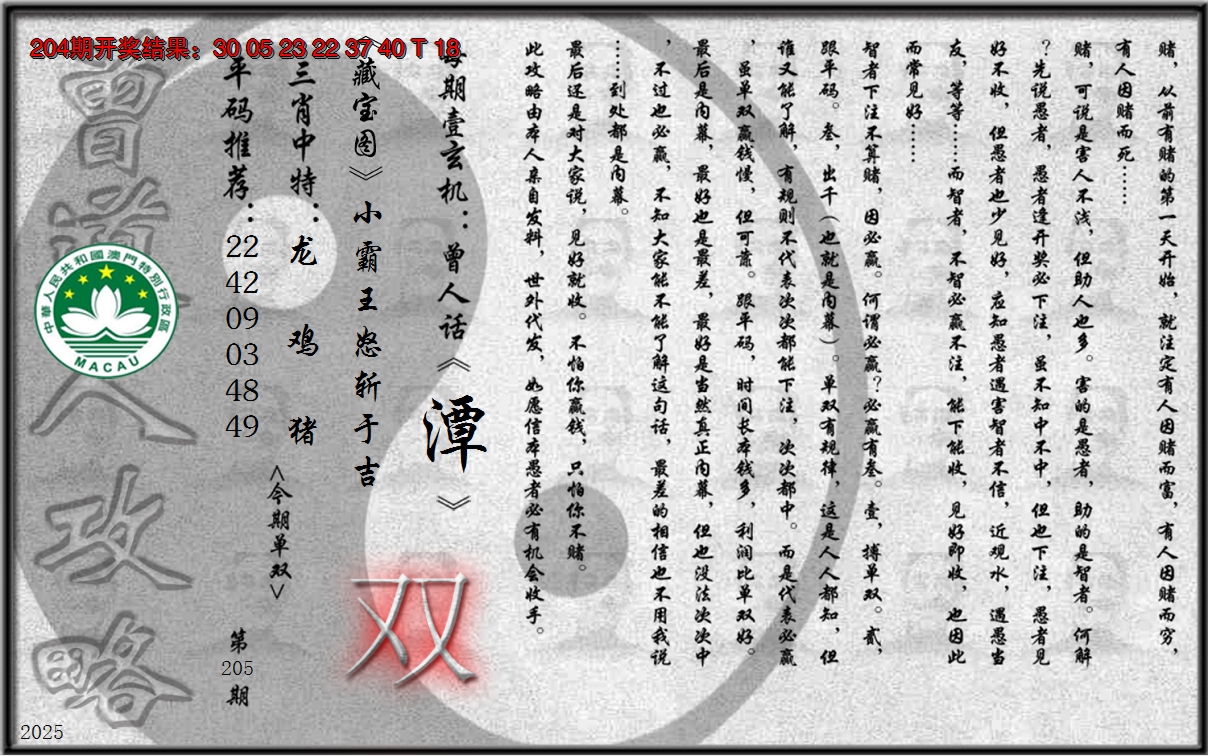 204期开奖结果：30 05 23 22 37 40 T 18
赌，从前有赌的第一天开始，就注定有人因赌而富，有人因赌而穷，
有人因赌而死……
赌，可说是害人不浅，但助人也多。害的是愚者，助的是智者。何解
？先说愚者，愚者逢开奖必下注，虽不知中不中，但也下注，愚者见
好不收，但愚者也少见好，应知愚者遇害智者不信，近观水，遇愚当
友，等等……而智者，不智必赢不注，能下能收，见好即收，也因此
而常见好……
智者下注不算赌，因必赢。何谓必赢？必赢有叁。壹，搏单双。贰，
跟平码。叁，出千（也就是内幕）。单双有规律，这是人人都知，但
谁又能了解，有规则不代表次次都能下注，次次都中。而是代表必赢
，虽单双赢钱慢，但可靠。跟平码，时间长本钱多，利润比单双好。
最后是内幕，最好也是最差，最好是当然真正内幕，但也没法次次中
，不过也必赢，不知大家能不能了解这句话，最差的相信也不用我说
……到处都是内幕。
最后还是对大家说，见好就收。不怕你赢钱，只怕你不赌。
此攻略由本人亲自发料，世外代发，如愿信本愚者必有机会收手。
每期壹玄机：曾人话《潭》
《藏宝图》小霸王怒斩于吉
双
三肖中特：龙 鸡 猪
<今期单双>
平码推荐：
22
42
09
03
48
49
第
205
期
曾道人攻略
中華人民共和國澳門特別行政區
MACAU
2025